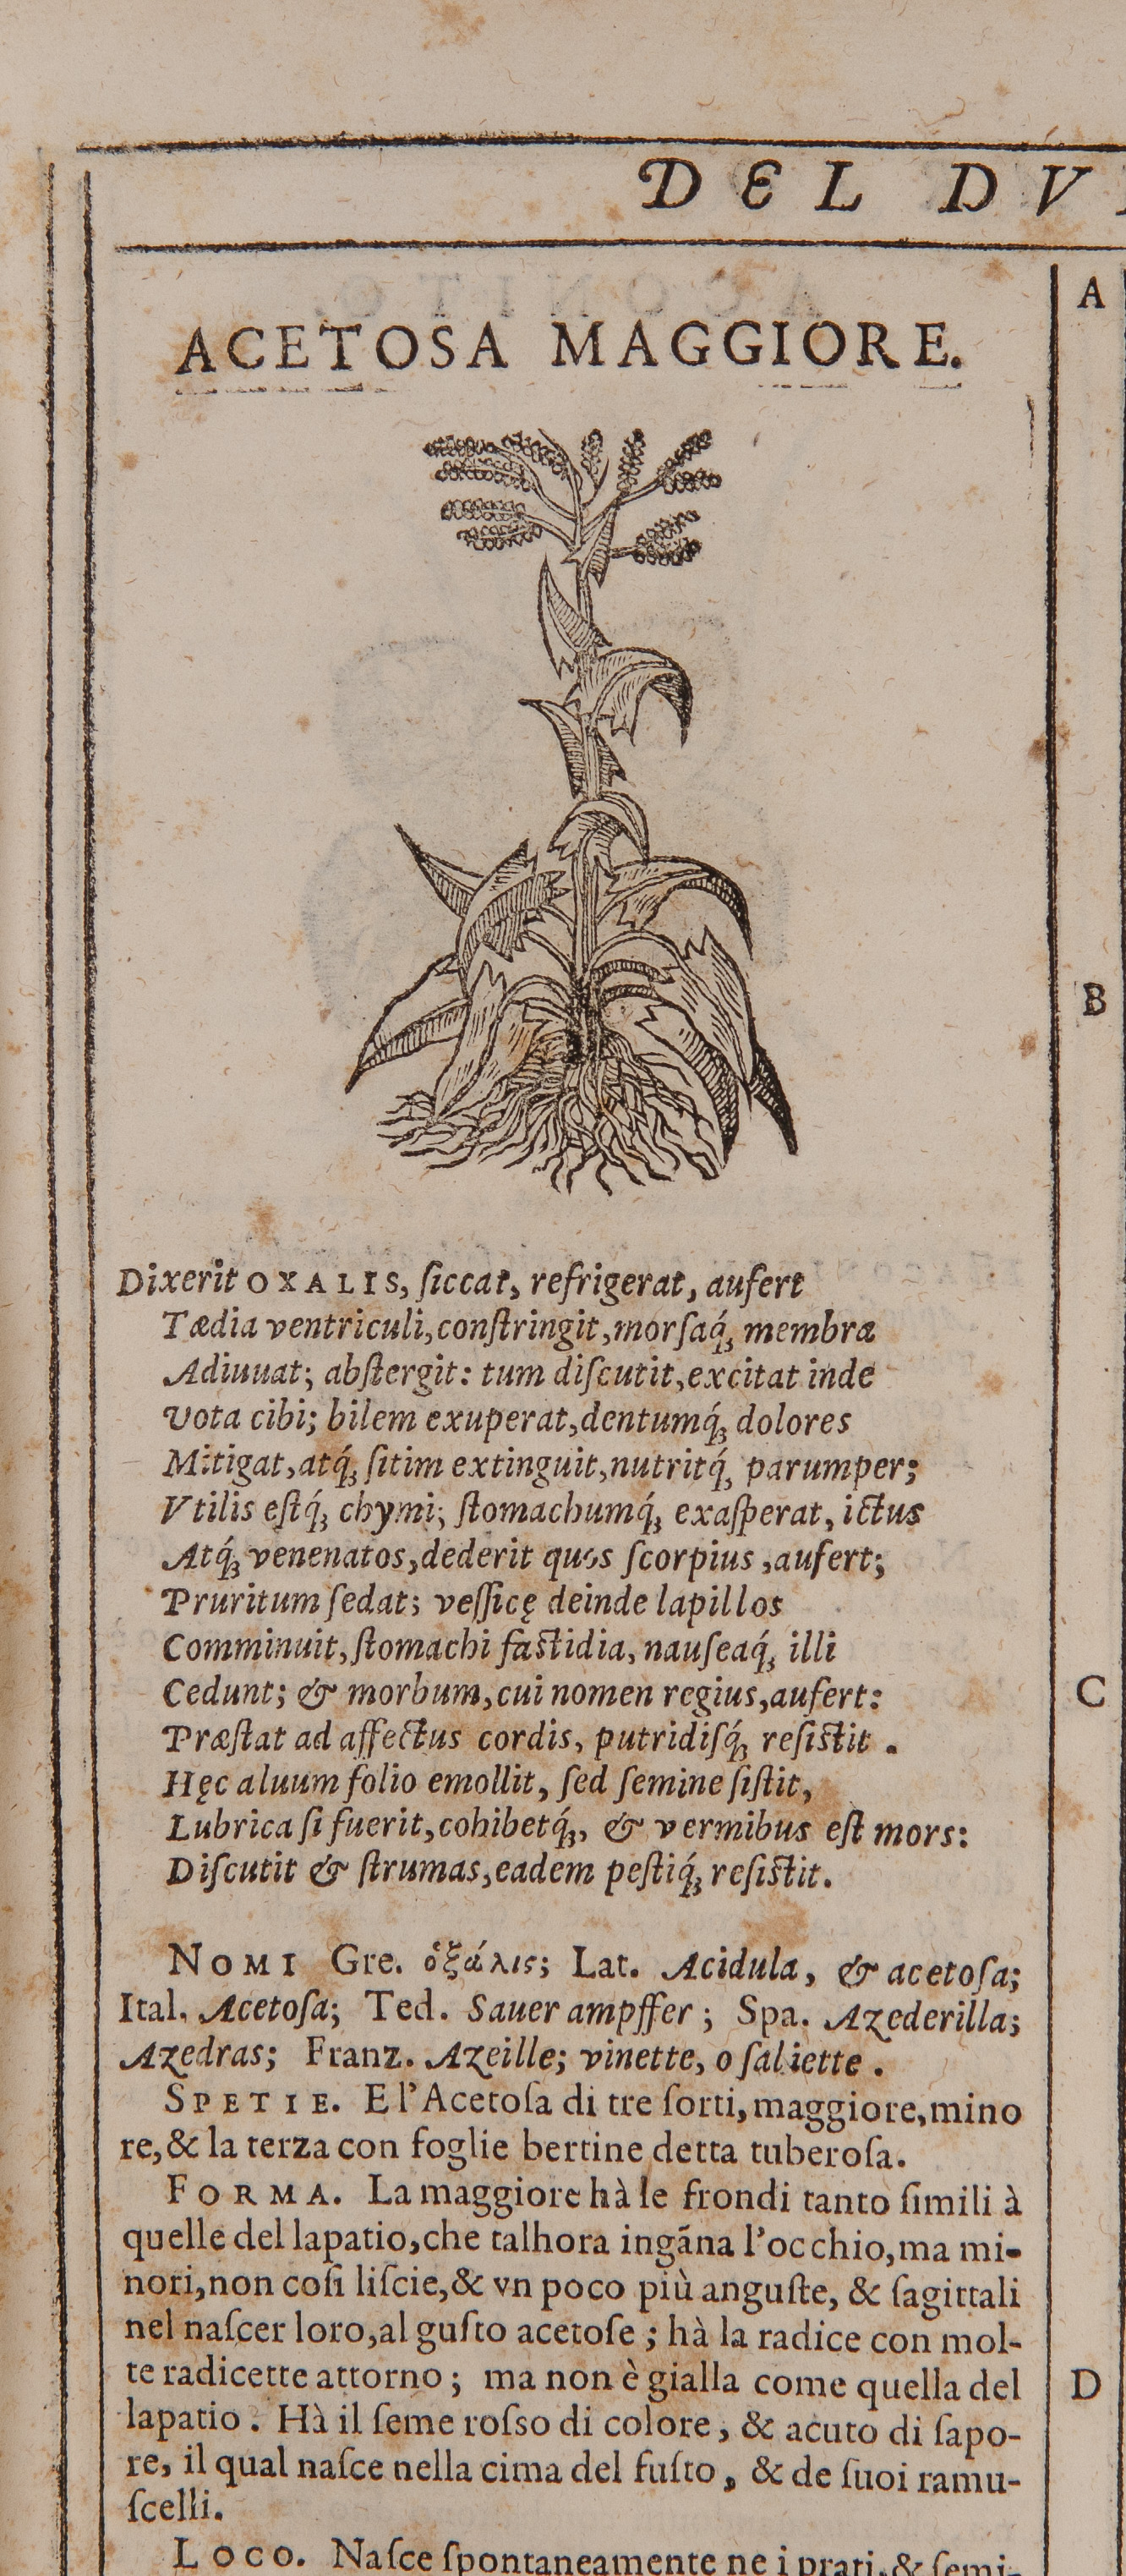 DEL DV
A
ACETOSA MAGGIORE.
B
Dixerit OXALIS, ſiccat, refrigerat, aufert
Tædia ventriculi, conſtringit, morſaq́; membra
Adiuuat; abſtergit: tum diſcutit, excitat inde
Vota cibi; bilem exuperat, dentumq́; dolores
Mitigat, atq́; ſitim extinguit, nutritq́; parumper;
Vtilis eſtq́; chymi; ſtomachumq́; exaſperat, ictus
Atq́; venenatos, dederit quos ſcorpius, aufert;
Pruritum ſedat; veſſicę deinde lapillos
Comminuit, ſtomachi faſtidia, nauſeaq́; illi
Cedunt; & morbum, cui nomen regius, aufert:
C
Præſtat ad affectus cordis, putridiſq́; reſiſtit.
Hęc aluum folio emollit, ſed ſemine ſiſtit,
Lubrica ſi fuerit, cohibetq́;, & vermibus eſt mors:
Diſcutit & ſtrumas, eadem peſtiq́; reſiſtit.
NOMI Gre. ὀξάλις; Lat. Acidula, & acetoſa;
Ital. Acetoſa; Ted. Sauer ampffer; Spa. Azederilla;
Azedras; Franz. Azeille; vinette, o ſaliette.
SPETIE. E l'Acetoſa di tre ſorti, maggiore, mino
re, & la terza con foglie bertine detta tuberoſa.
FORMA. La maggiore hà le frondi tanto ſimili à
quelle del lapatio, che talhora ingãna l'occhio, ma mi-
nori, non coſi liſcie, & vn poco più anguſte, & ſagittali
nel naſcer loro, al guſto acetoſe; hà la radice con mol-
te radicette attorno; ma non è gialla come quella del
D
lapatio. Hà il ſeme roſso di colore, & acuto di ſapo-
re, il qual naſce nella cima del fuſto, & de ſuoi ramu-
ſcelli.
LOCO. Naſce ſpontaneamente ne i prati, & ſemi-